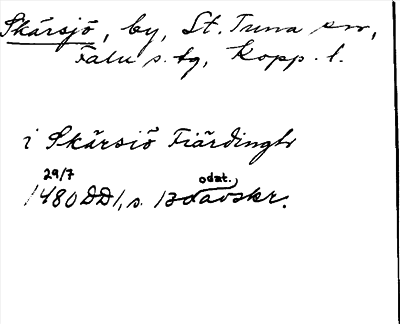 Skärsjö, by, St. Tuna sn,
Falu s. tg, Kopp. l.
i Skärsiö Fiärdingh
29/7 odat.
1480 DD1, s. 13 avskr.